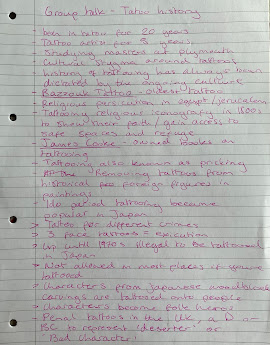 Group talk - Tatoo history
- been in tatoo for 20 years
- Tattoo artist for 5 years
- Studying masters at plymouth
- Cultural stygma around tattoos
- history of tattooing has always been dictated by the ruling culture
- Tattoo - oldest tattoo
- Religious persicution in egypt / jerusalem
- Tattooing religious iconography in 1600s to show their faith / gain access to safe spaces and refuge
- James Cooke - owned books on tattooing
- Tattooing also known as pricking
- Removing tattoos from historical foreign figures in paintings
- period tattooing became popular in Japan
> Tattoo for different crimes
> 3 face tattoos = execution
> Up until 1940s illegal to be tattooed in Japan
> Not allowed in most places if your tattooed
> Characters from Japanese woodblock carvings are tattooed onto people
> Characters become folk heros
- Penal tattoos in the UK, a D or BC to represent 'deserter' or 'Bad character'